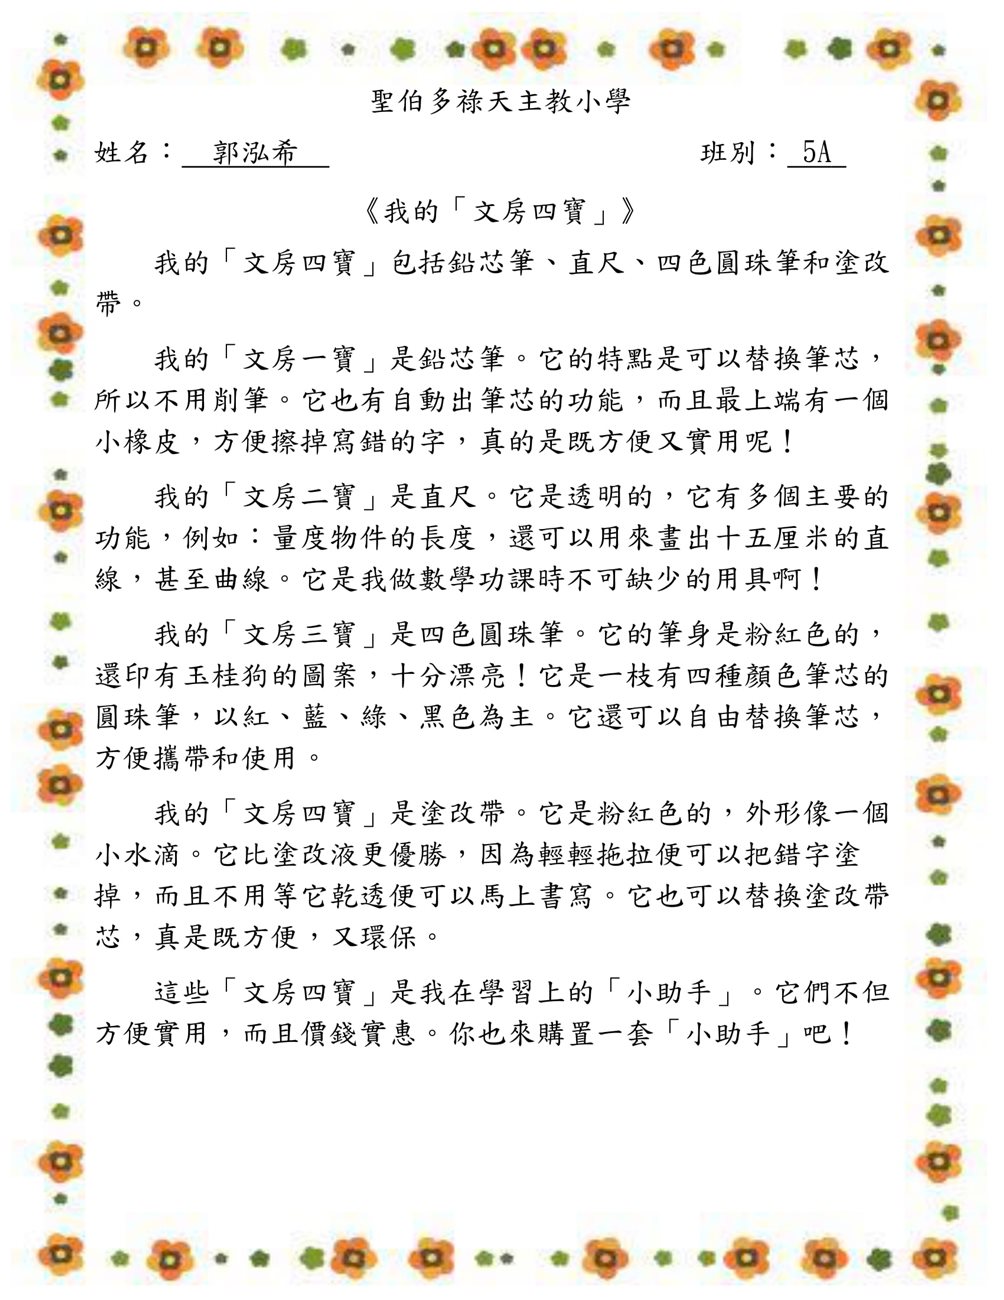 聖伯多祿天主教小學
姓名：郭泓希 班別：5A
《我的「文房四寶」》
我的「文房四寶」包括鉛芯筆、直尺、四色圓珠筆和塗改
帶。
我的「文房一寶」是鉛芯筆。它的特點是可以替換筆芯，
所以不用削筆。它也有自動出筆芯的功能，而且最上端有一個
小橡皮，方便擦掉寫錯的字，真的是既方便又實用呢！
我的「文房二寶」是直尺。它是透明的，它有多個主要的
功能，例如：量度物件的長度，還可以用來畫出十五厘米的直
線，甚至曲線。它是我做數學功課時不可缺少的用具啊！
我的「文房三寶」是四色圓珠筆。它的筆身是粉紅色的，
還印有玉桂狗的圖案，十分漂亮！它是一枝有四種顏色筆芯的
圓珠筆，以紅、藍、綠、黑色為主。它還可以自由替換筆芯，
方便攜帶和使用。
我的「文房四寶」是塗改帶。它是粉紅色的，外形像一個
小水滴。它比塗改液更優勝，因為輕輕拖拉便可以把錯字塗
掉，而且不用等它乾透便可以馬上書寫。它也可以替換塗改帶
芯，真是既方便，又環保。
這些「文房四寶」是我在學習上的「小助手」。它們不但
方便實用，而且價錢實惠。你也來購置一套「小助手」吧！